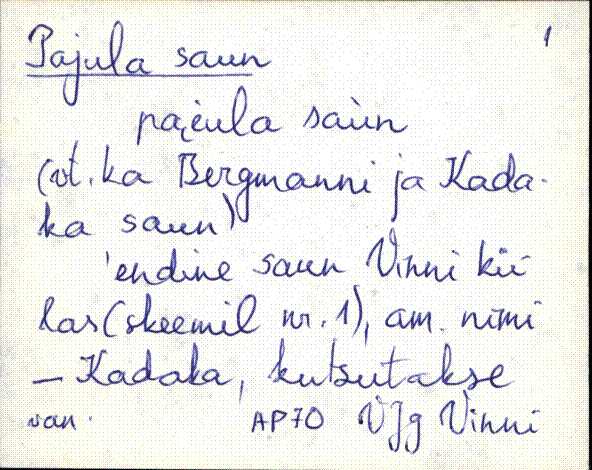 1
Pajula saun
pai̯ula saùn
(vt. ka Bergmanni ja Kada-
ka saun)
'endine saun Vinni kü-
las (skeemil nr. 1), am. nimi
– Kadaka, kutsutakse
van. AP70 VJg Vinni